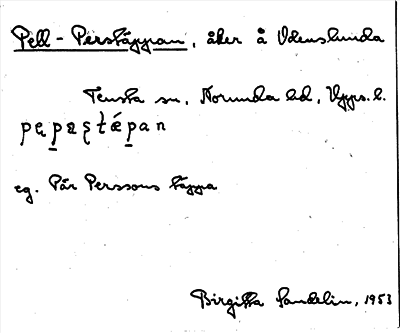 Pell-Perstäppan, åker å Odenslunda
Tensta sn, Norunda hd, Upps. l.
pę̣pęʂtǽpan
eg. Pär Perssons täppa
Birgitta Sandelin, 1953